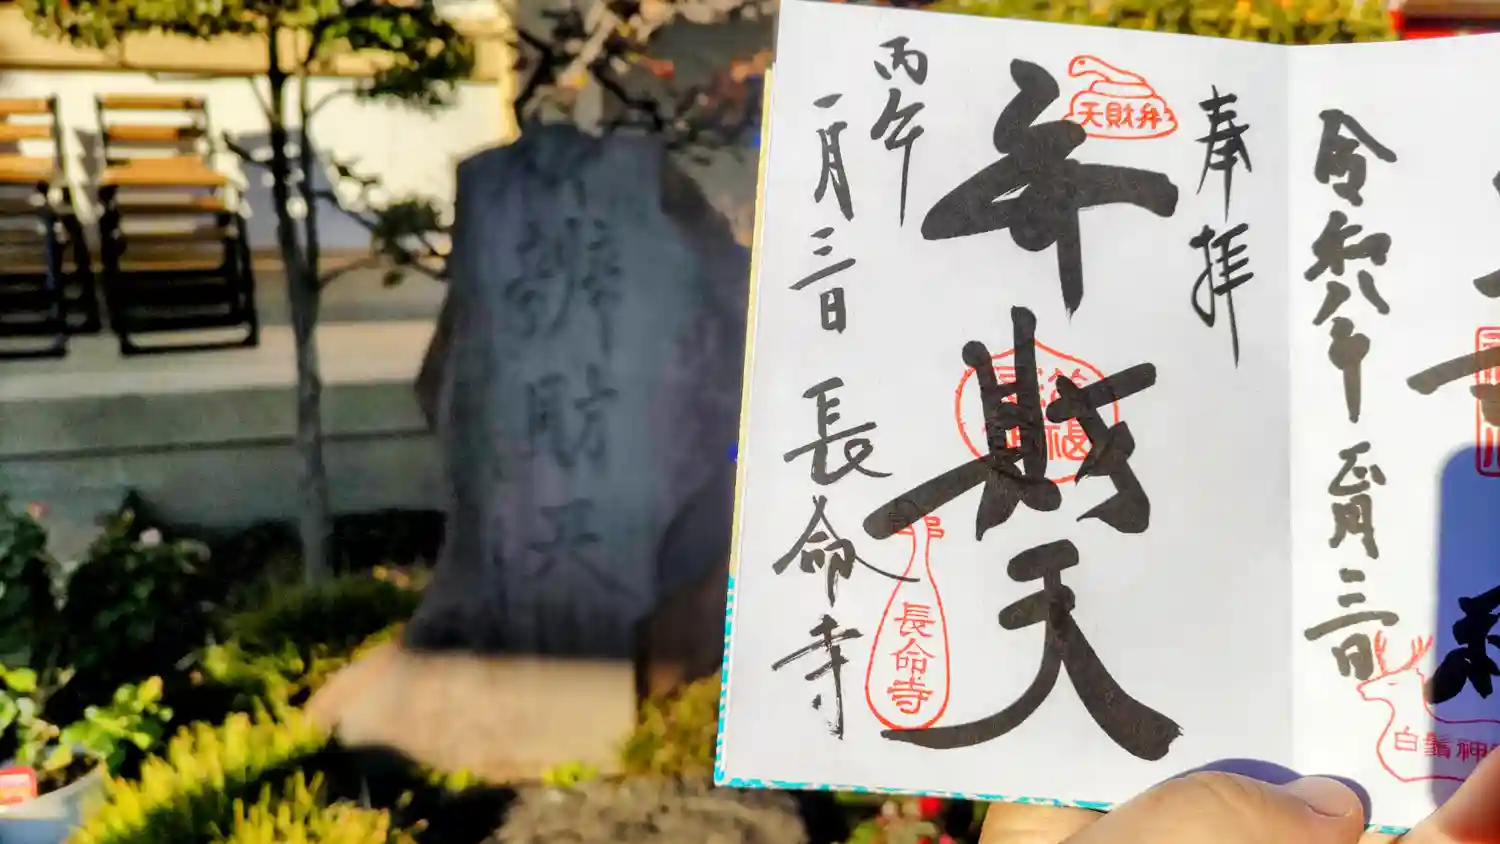 令和八年
正月三日
白鬚神
奉拝
弁財天
天財弁
長命寺
丙午
一月三日
長命寺
辨財天